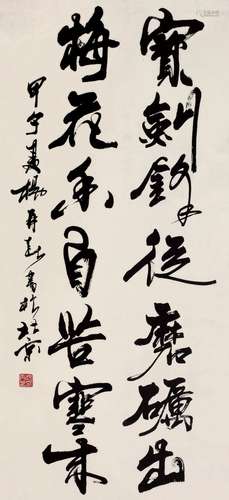 寶劍鋒從磨礪出
梅花香自苦寒来
甲午夏楊再春書於北京